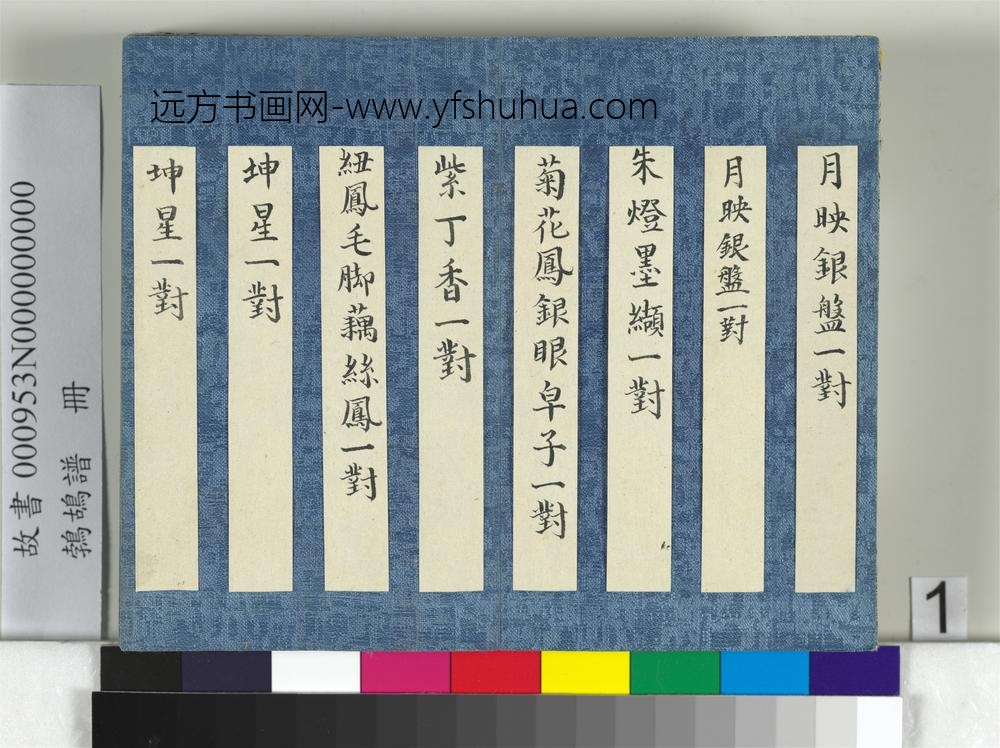 远方书画网-www.yfshuhua.com
月映銀盤一對
月映銀盤一對
朱燈墨纈一對
菊花鳳銀眼皁子一對
紫丁香一對
紐鳳毛脚藕絲鳳一對
坤星一對
坤星一對
故書 000953N000000000
鵓鴣譜 冊
1